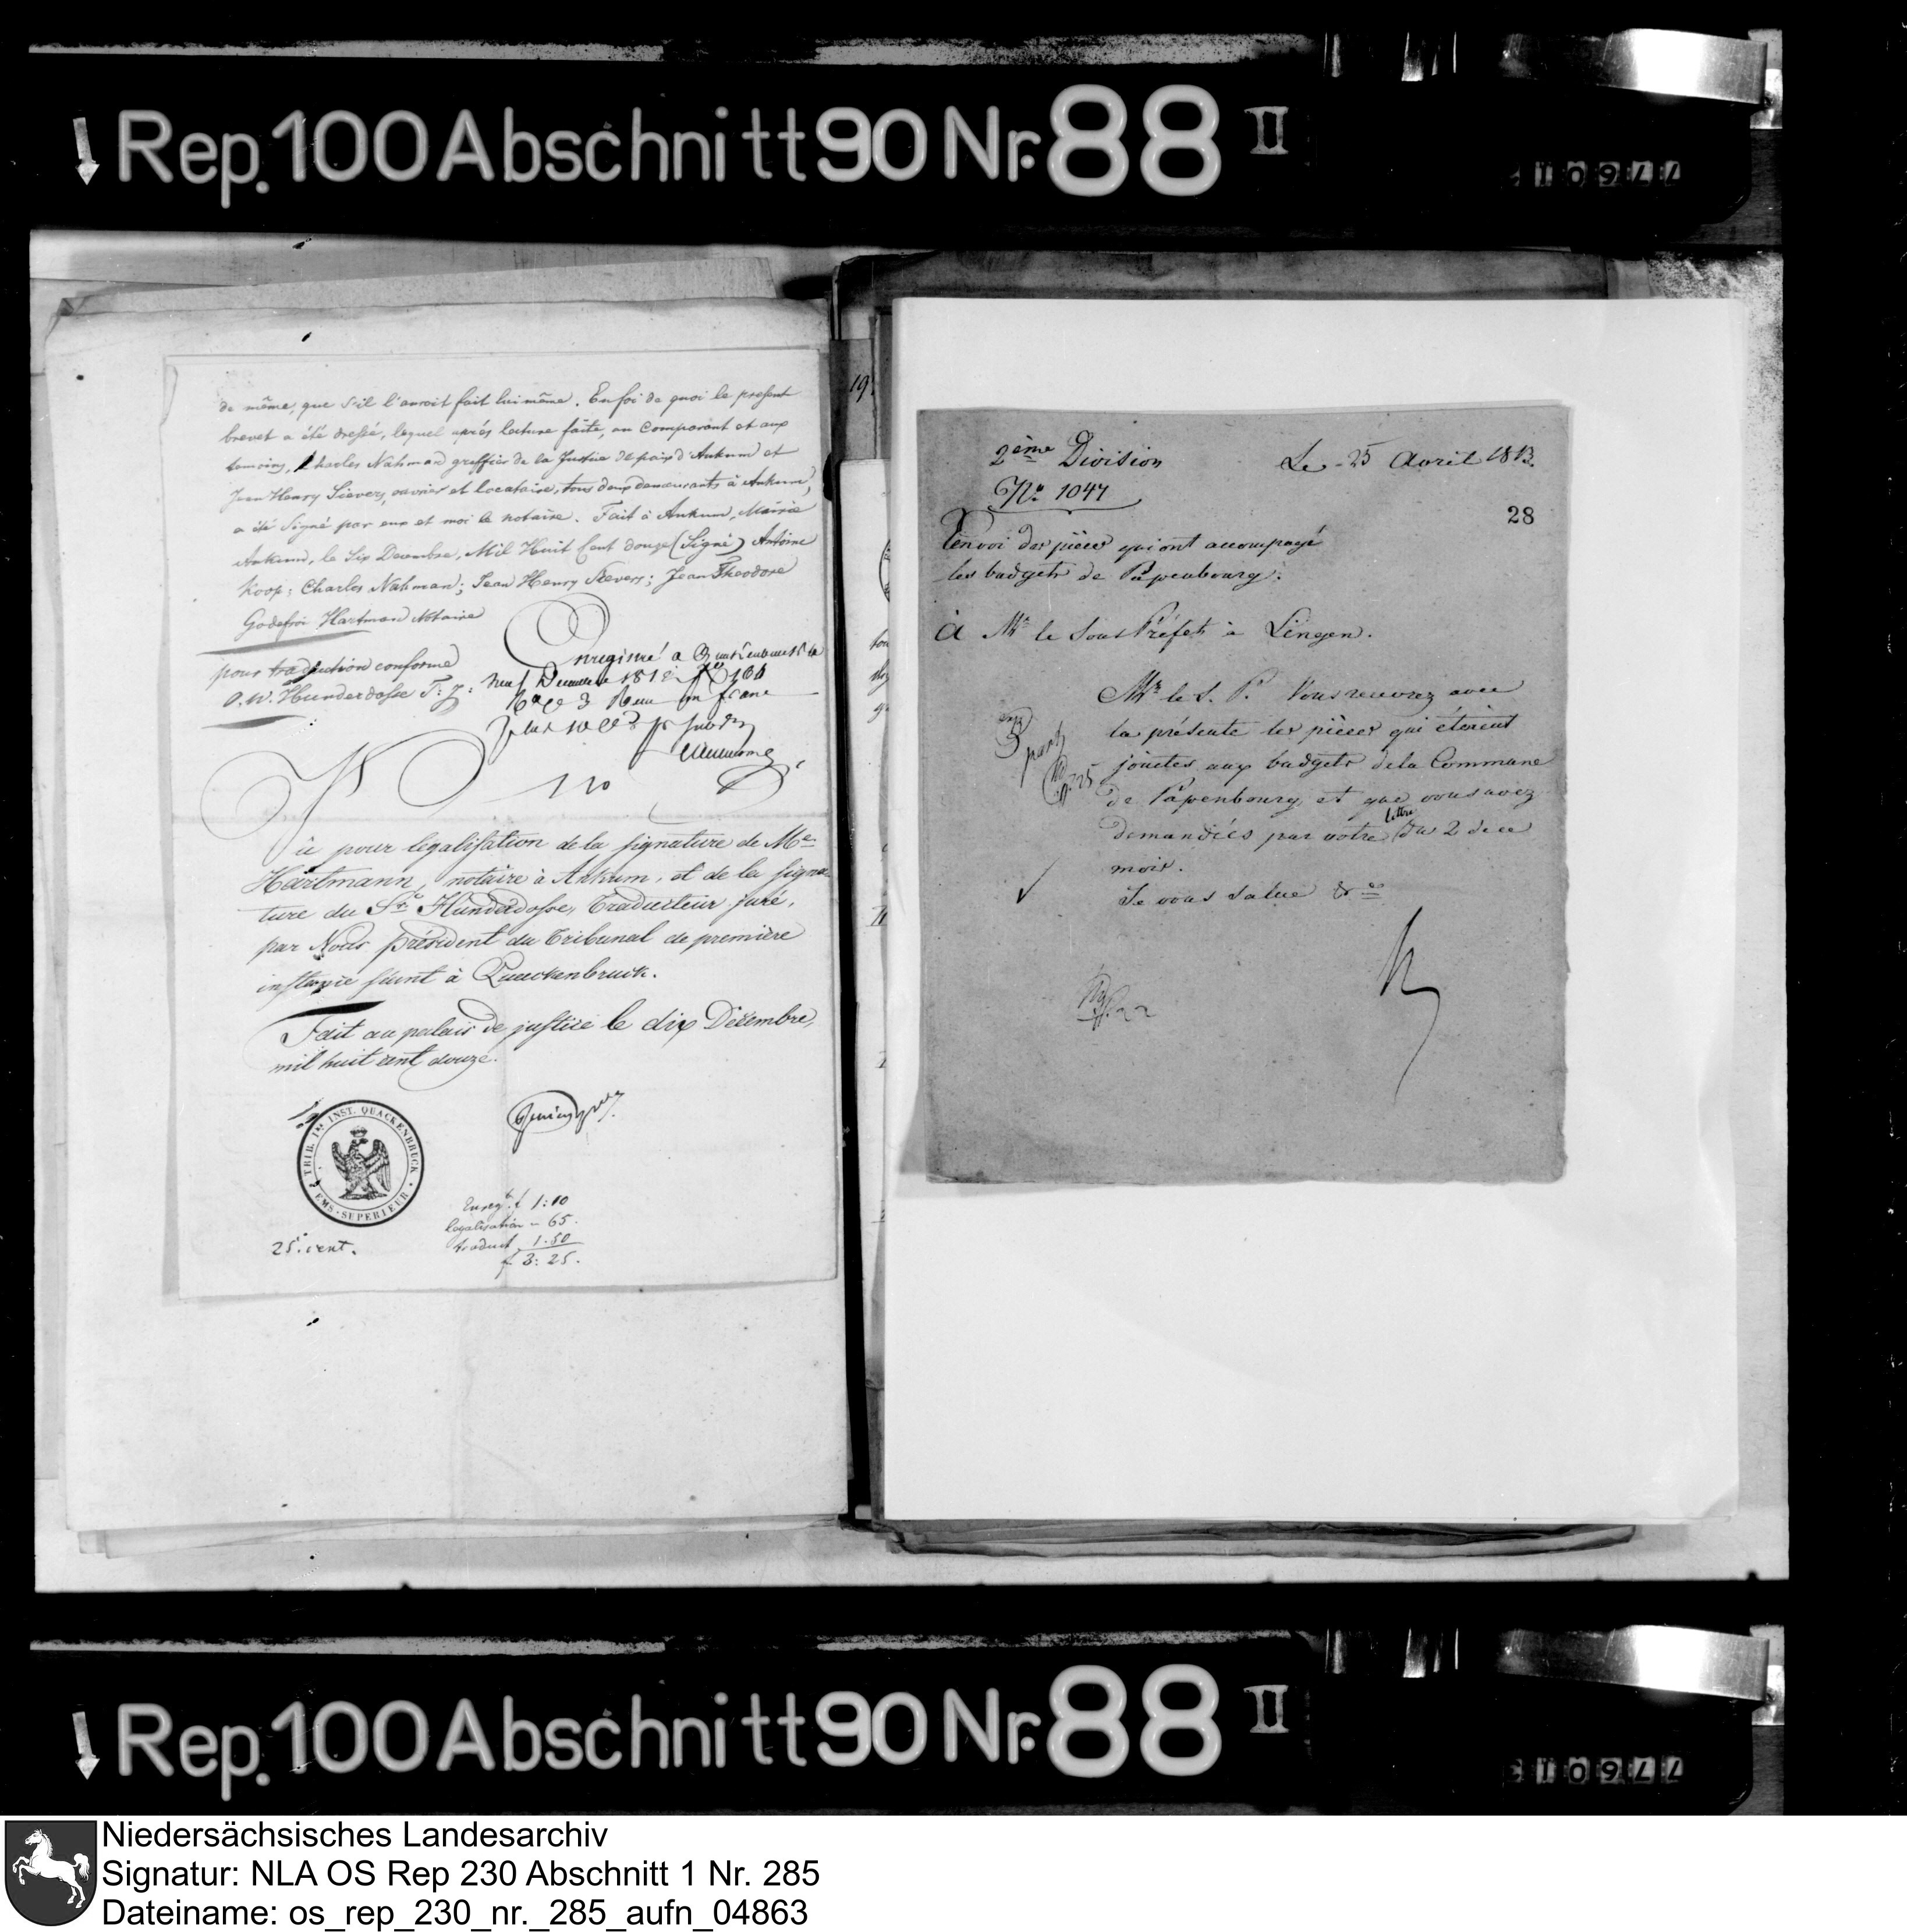 Rep. 100 Abschnitt 90 Nr. 88 II
de même, que s'il l'auroit fait lui même. En foi de quoi le present
brevet a été dressé, lequel aprés lecture faite, au Comparant et aux
temoins, Charles Nahman greffier de la Justice de paix d'Ankum et
Jean Henry Sievers, ouvrier et locataire, tous deux demeurants à Ankum,
a été Signé par eux et moi le notaire. Fait à Ankum, Mairie
Ankum, le Six Decembre, Mil Huit Cent douze (Signé) Antoine
Koop; Charles Nahman; Jean Henry Sievers; Jean Theodore
Godefroi Hartman Notaire
pour traduction conforme
O. W. Hunderdosse T: j:
Enregistré a
neuf Decembre 1812
un franc
Vu pour legalisation de la signature de Me
Hartmann, notaire à Ankum, et de la signa-
ture du Sr Hunderdosse, Traducteur juré,
par Nous président du Tribunal de première
instance séant à Quackenbruck.
Fait au palais de justice le dix Décembre,
mil huit cent douze.
TRIB. 1re INST. QUACKENBRUCK
EMS-SUPERIEUR
25. cent.
Enreg. f 1:10
legalisation - 65.
traduct 1.50
f 3: 25.
19
2ème Division
Le 25 Avril 1813.
No 1047
28
Renvoi des pièces qui ont accompagé
les budgets de Papenbourg.
à Mr le Sous Préfet à Lingen.
Mr le S. P. Vous recevrez avec
la présente les pièces qui étoient
jointes aux budgets de la Commune
de Papenbourg et que vous avez
demandées par votre lettre du 2 de ce
mois.
Je vous salue &c
Rep. 100 Abschnitt 90 Nr. 88 II
Niedersächsisches Landesarchiv
Signatur: NLA OS Rep 230 Abschnitt 1 Nr. 285
Dateiname: os_rep_230_nr._285_aufn_04863